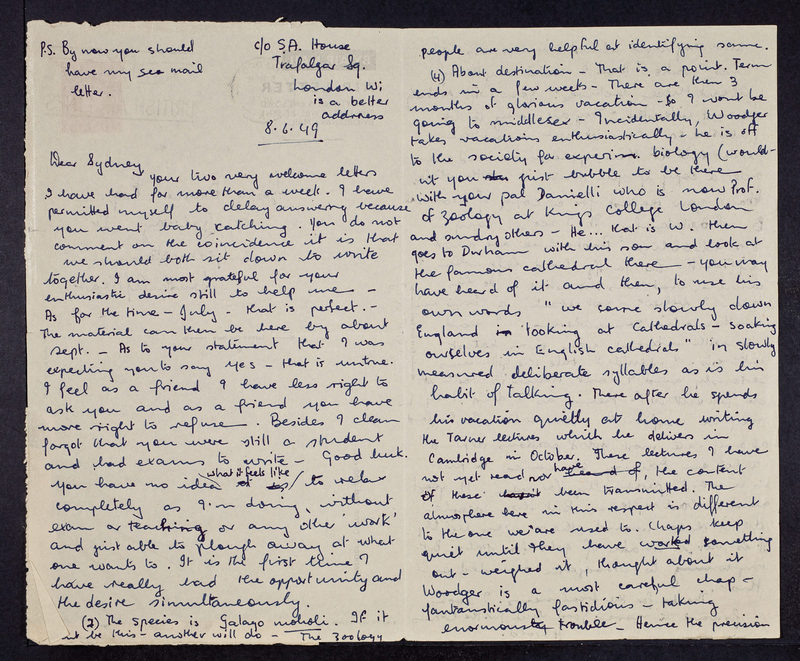 P.S. By now you should
have my sea mail
letter.
c/o S.A. House
Trafalgar Sq.
London W1
is a better
address
8.6.49
Dear Sydney,
your two very welcome letters
I have had for more than a week. I have
permitted myself to delay answering because
you went baby catching. You do not
comment on the coincidence it is that
we should both sit down to write
together. I am most grateful for your
enthusiastic desire still to help me –
As for the time – July – that is perfect. –
The material can then be here by about
Sept. – As to your statement that I was
expecting you to say yes – that is untrue.
I feel as a friend I have less right to
ask you and as a friend you have
more right to refuse. Besides I clean
forgot that you were still a student
and had exams to write – Good luck.
You have no idea what it feels like to relax
completely as I'm doing, without
exam or teaching or any other 'work'
and just able to plough away at what
one wants to. It is the first time I
have really had the opportunity and
the desire simultaneously.
(2) The species is Galago moholi. If it
not be this – another will do – The zoology
people are very helpful at identifying same.
(4) About destination – That is a point. Term
ends in a few weeks – There are then 3
months of glorious vacation – So I wont be
going to middlesex – Incidentally, Woodger
takes vacations enthusiastically – he is off
to the society for experim. biology (would-
nt you just bubble to be there
with your pal Danielli who is now Prof.
of zoology at Kings College London
and sundry others – He... that is W. then
goes to Durham with his son and look at
the famous cathedral there – you may
have heard of it and then, to use his
own words "we come slowly down
England looking at Cathedrals – soaking
ourselves in English cathedrals" in slowly
measured deliberate syllables as is his
habit of talking. There after he spends
his vacation quietly at home writing
the Tarner lectures which he delivers in
Cambridge in October. These lectures I have
not yet read nor have heard of the content
of these been transmitted. The
atmosphere here in this respect is different
to the one we are used to. Chaps keep
quiet until they have worked something
out – weighed it, thought about it
Woodger is a most careful chap –
fantastically fastidious – taking
enormous trouble – Hence the precision